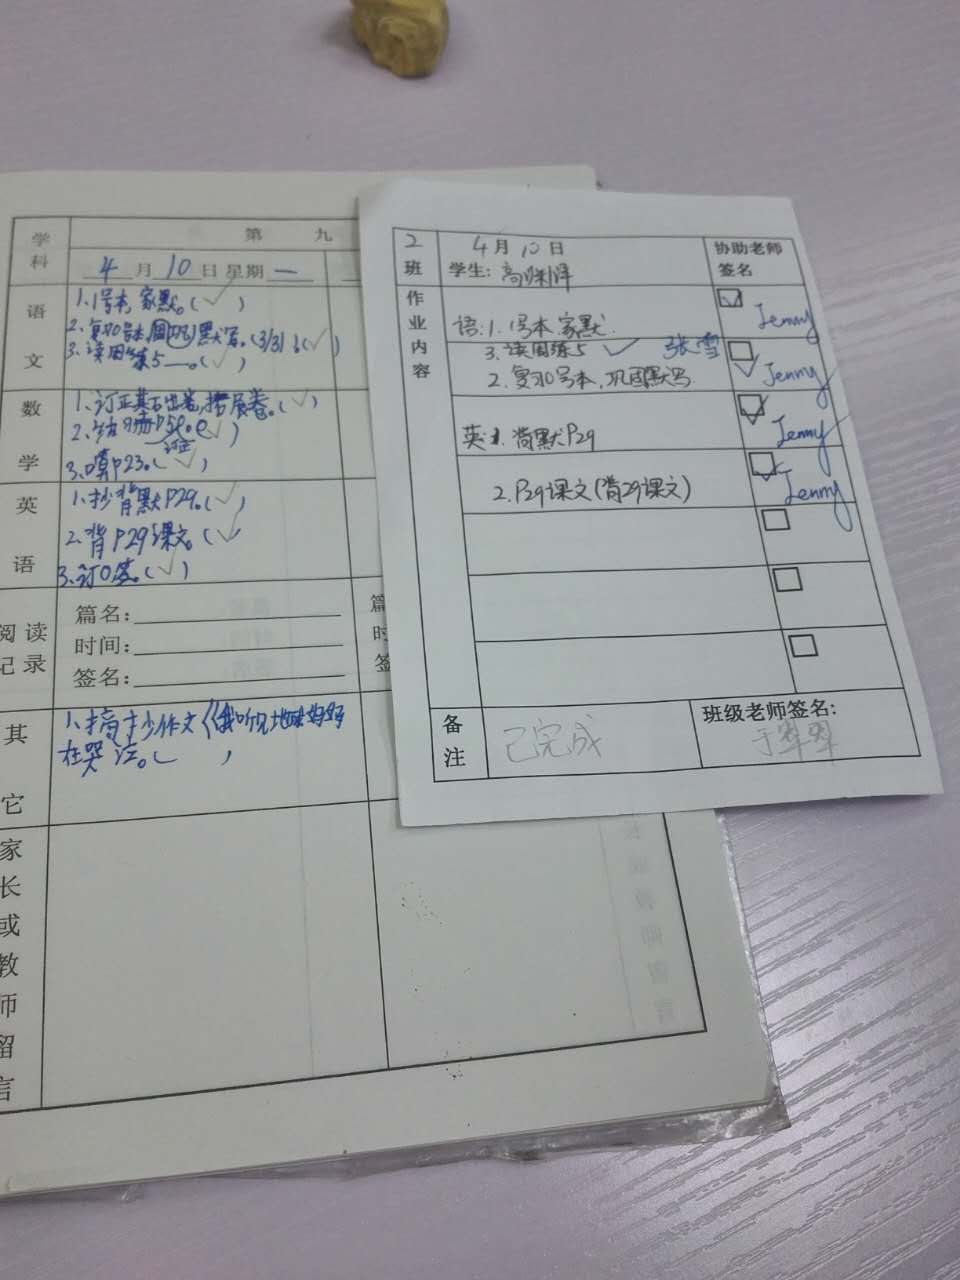 学科
第 九
4月10日 星期一
语文
1、1号本,家默。(✓)
2、复习0号本,巩固默写。(3/3)(✓)
3、读周练5。(✓)
数学
1、订正 卷,拓展卷。(✓)
2、
订正
3、 P23。(✓)
英语
1、抄背默P29。(✓)
2、背P29课文。(✓
3、订 。(✓)
阅读记录
篇名:
时间:
签名:
篇
时
签
其它
1、摘抄作文《我听见地球妈妈
在哭泣。( )
家长或教师留言
2班
4月10日
学生:高 泽
协助老师
签名
作业内容
语:1.1号本家默.
Jenny
3.读周练5 ✓ 张雪
2.复习0号本,巩固默写
Jenny
英:1.背默P29
Jenny
2.P29课文(背29课文)
Jenny
备注
已完成
班级老师签名:
于翠翠